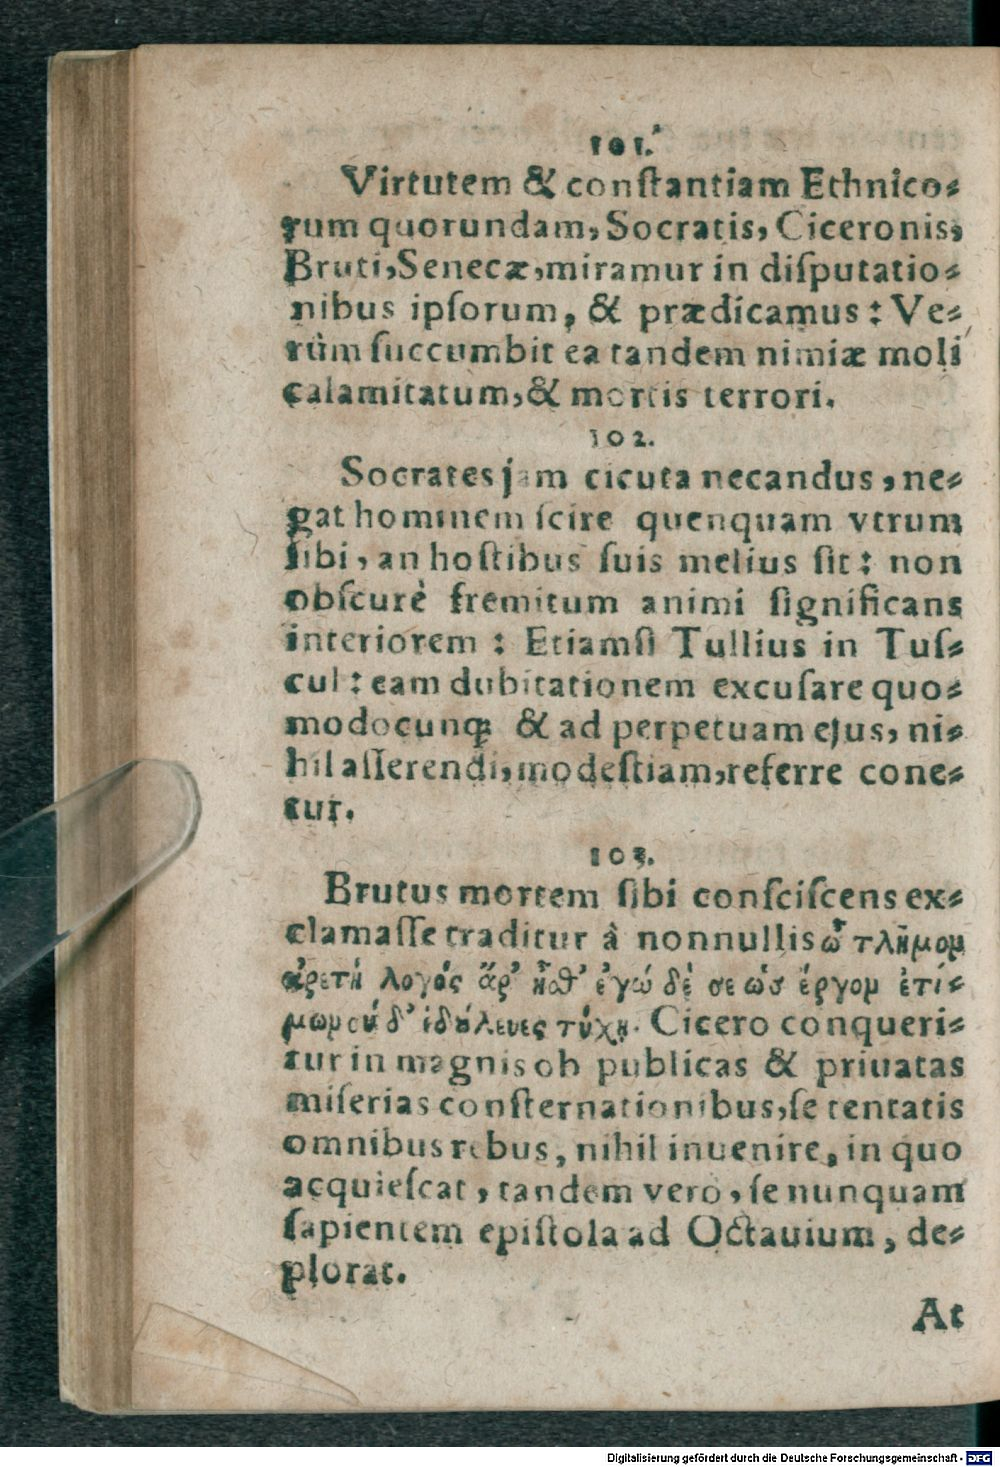 101.
Virtutem & conſtantiam Ethnico⸗
rum quorundam, Socratis, Ciceronis,
Bruti, Senecæ, miramur in diſputatio⸗
nibus ipſorum, & prædicamus: Ve⸗
rùm ſuccumbit ea tandem nimiæ moli
calamitatum, & mortis terrori.
102.
Socrates jam cicuta necandus, ne⸗
gat hominem ſcire quenquam vtrum
ſibi, an hoſtibus ſuis melius ſit: non
obſcurè fremitum animi ſignificans
interiorem: Etiamſi Tullius in Tuſ⸗
cul: eam dubitationem excuſare quo⸗
modocunq; & ad perpetuam ejus, ni⸗
hil aſſerendi, modeſtiam, referre cone⸗
tur.
103.
Brutus mortem ſibi conſciſcens ex⸗
clamaſſe traditur à nonnullis ὦ τλῆμομ
ἀρετὴ λογός ἄρ’ ἦσθ’ ἐγώ δέ σε ὡσ ἔργομ ἐτί⸗
μωμ σύ δ’ ἐδούλευες τύχῃ. Cicero conqueri⸗
tur in magnis ob publicas & priuatas
miſerias conſternationibus, ſe tentatis
omnibus rebus, nihil inuenire, in quo
acquieſcat, tandem verò, ſe nunquam
ſapientem epiſtola ad Octauium, de⸗
plorat.
At
Digitalisierung gefördert durch die Deutsche Forschungsgemeinschaft - DFG